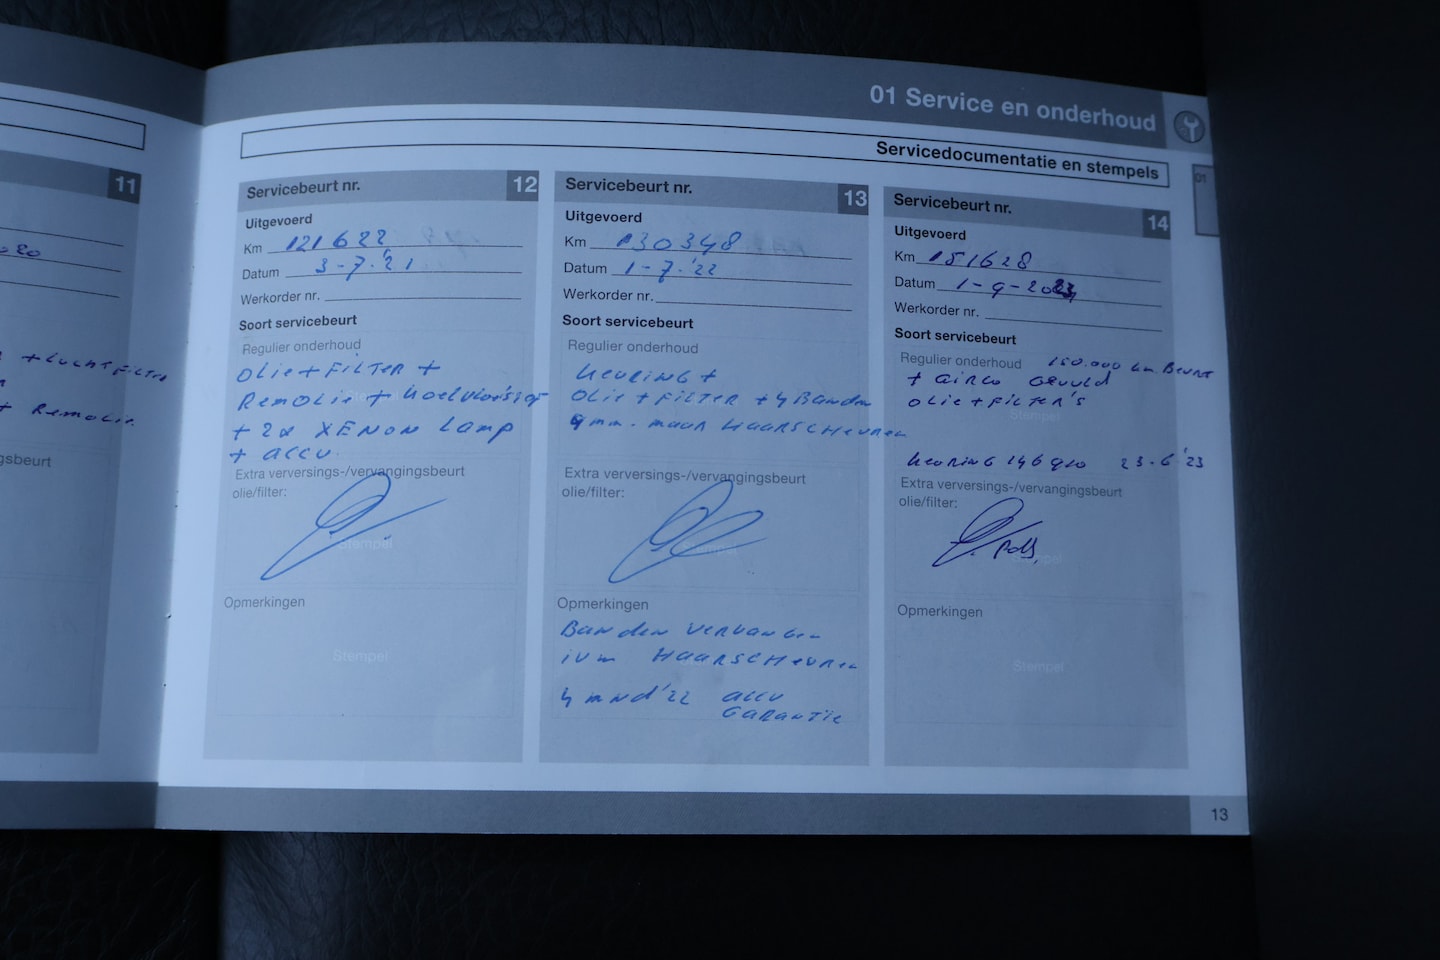 01 Service en onderhoud
01
Servicedocumentatie en stempels
11
20
+ luchtfilter
+ Remolie.
sbeurt
Servicebeurt nr. 12
Uitgevoerd
Km 121622
Datum 3-7-'21
Werkorder nr.
Soort servicebeurt
Regulier onderhoud
Olie + FilTER +
Remolie + koelvloeistof
+ 2x XENON Lamp
+ accu
Extra verversings-/vervangingsbeurt
olie/filter:
Stempel
Opmerkingen
Stempel
Servicebeurt nr. 13
Uitgevoerd
Km 130348
Datum 1-7-'22
Werkorder nr.
Soort servicebeurt
Regulier onderhoud
keuring +
Olie + FilTER + 4 Banden
mm. maar HAARSCHEUREN
Extra verversings-/vervangingsbeurt
olie/filter:
Stempel
Opmerkingen
Banden vervangen
ivm HAARSCHEUREN
4 mnd '22 accu
GARANTIE
Servicebeurt nr. 14
Uitgevoerd
Km 151628
Datum 1-9-2023
Werkorder nr.
Soort servicebeurt
Regulier onderhoud 150.000 km Beurt
+ airco gevuld
olie + filter's
Stempel
keuring 146 910 23-6-'23
Extra verversings-/vervangingsbeurt
olie/filter:
Stempel
Opmerkingen
Stempel
13